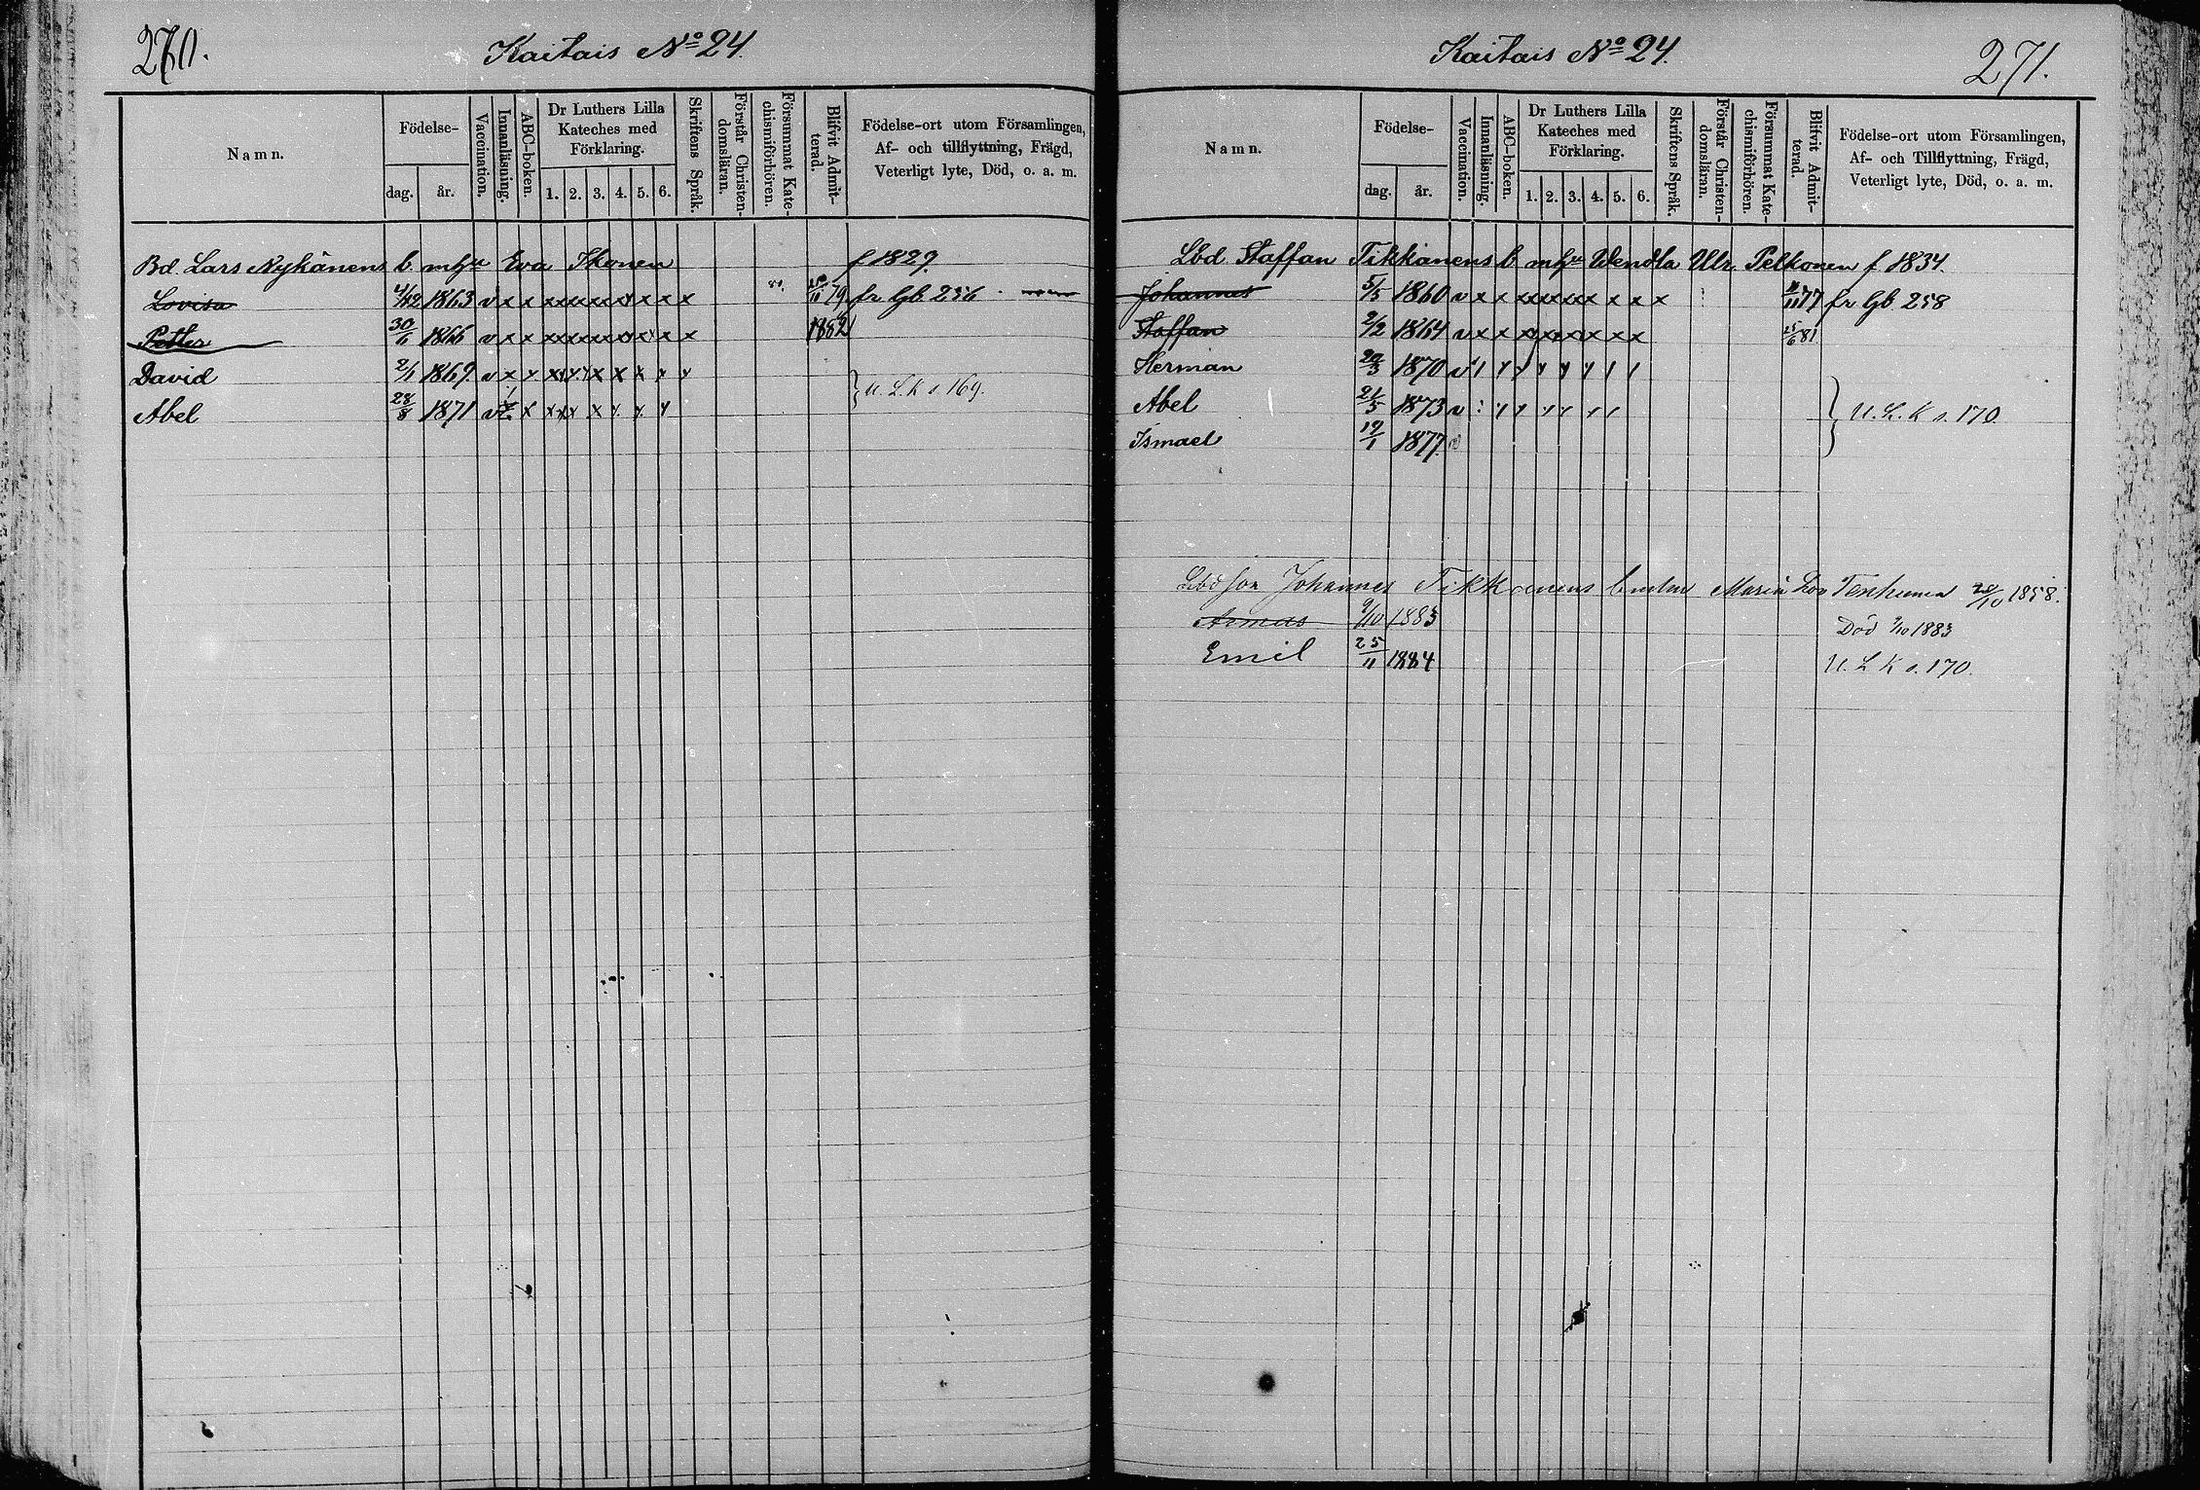 270.
Kaitais No 24.
Namn.
Födelse-
dag.
år.
Vaccination.
Innanläsning.
ABC-boken.
Dr Luthers Lilla
Kateches med
Förklaring.
1. 2. 3. 4. 5. 6.
Skriftens Språk.
Förstår Christen-
domsläran.
Försummat Kate-
chismiförhören.
Blifvit Admit-
terad.
Födelse-ort utom Församlingen,
Af- och tillflyttning, Frägd,
Veterligt lyte, Död, o. a. m.
Bd. Lars Nykänens b. Eva Ikonen f 1829.
Lovisa 1863 v x x x x x x x x x 79. fr Gb. 256
Petter 1866 v x x x x x x x x x 1882
David 2/1 1869. v x x x x x x x x x
U. L. K s. 169.
Abel 28/8 1871 v x x x x x x x
Kaitais No 24.
271.
Namn.
Födelse-
dag.
år.
Vaccination.
Innanläsning.
ABC-boken.
Dr Luthers Lilla
Kateches med
Förklaring.
1. 2. 3. 4. 5. 6.
Skriftens Språk.
Förstår Christen-
domsläran.
Försummat Kate-
chismiförhören.
Blifvit Admit-
terad.
Födelse-ort utom Församlingen,
Af- och Tillflyttning, Frägd,
Veterligt lyte, Död, o. a. m.
Lbd Staffan Tikkanens b. Wendla Ulr. Pelkonen f 1834.
Johannes 5/5 1860 v x x x x x x x x x 77 fr Gb. 258
Staffan 2/2 1864 v x x x x x x x x 81
Herman 1870 v
Abel 21/5 1873 v
U. L. K s. 170
Ismael 1877.
Lbdson Johannes Tikkanens Maria Lov 1858.
9/10 1883 Död 9/10 1883
Emil 25/11 1884 U. L K s. 170.